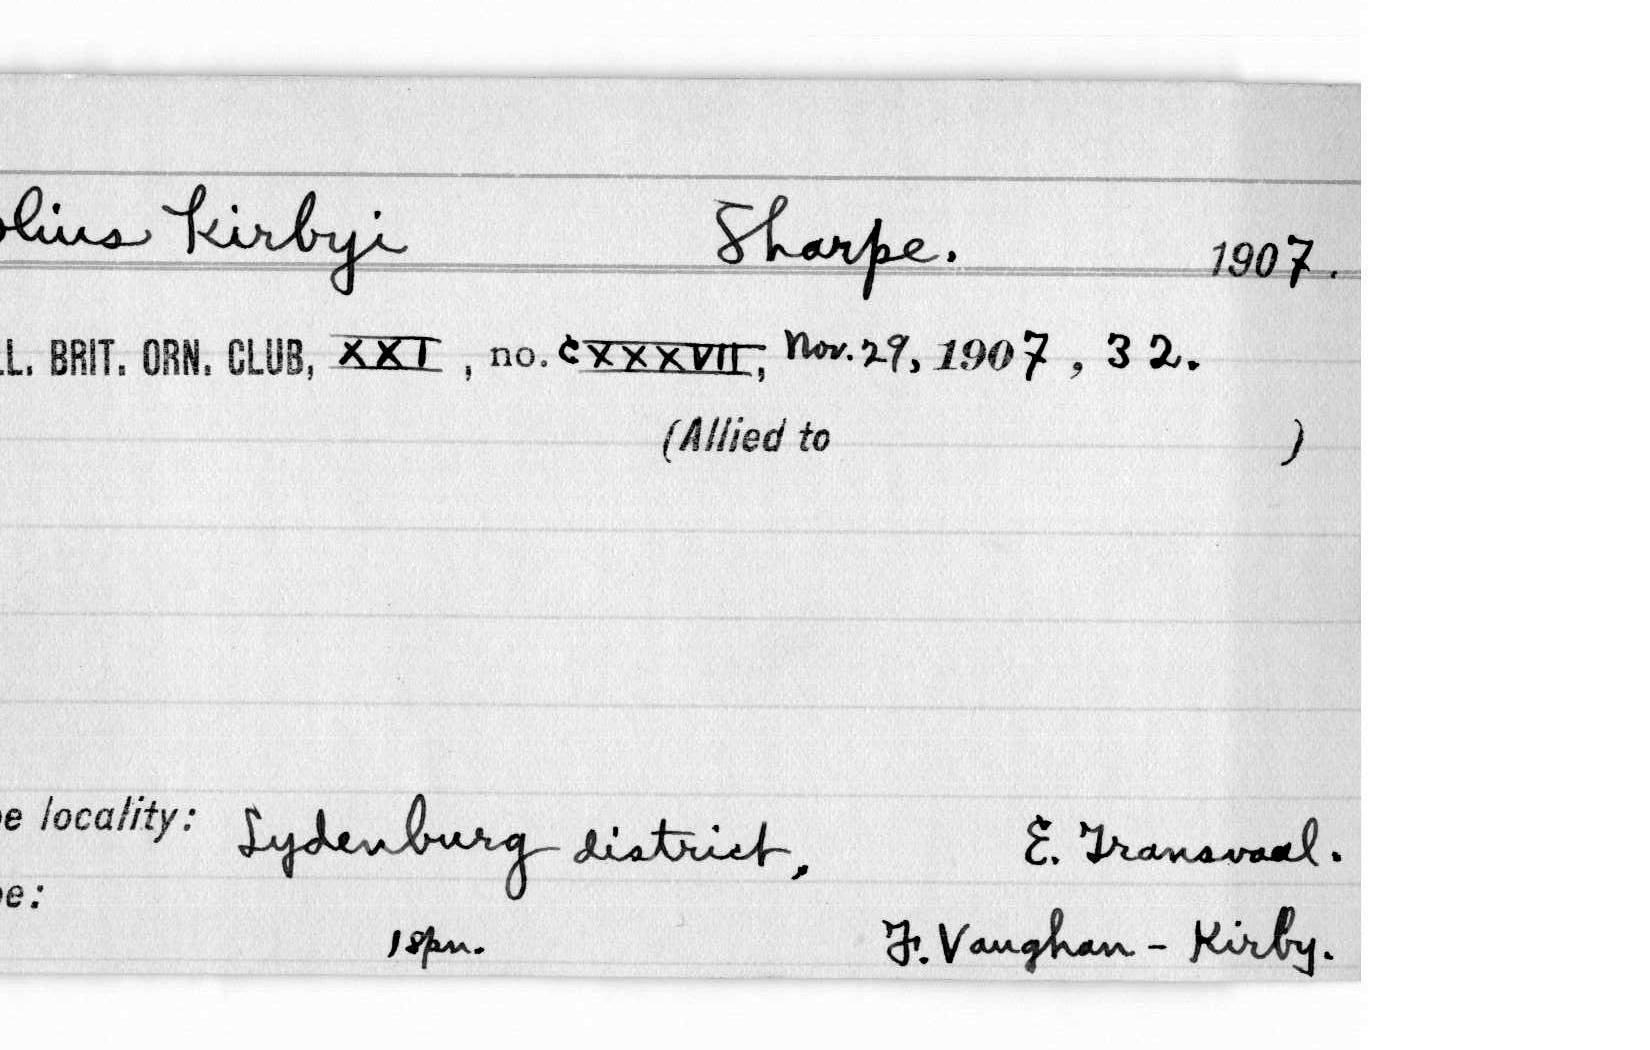 olius Kirbyi Sharpe. 1907.
LL. BRIT. ORN. CLUB, XXI, no. CXXXVII, Nov. 29, 1907, 32.
(Allied to )
e locality: Lydenburg district, E. Transvaal.
e:
1 spn. F. Vaughan - Kirby.